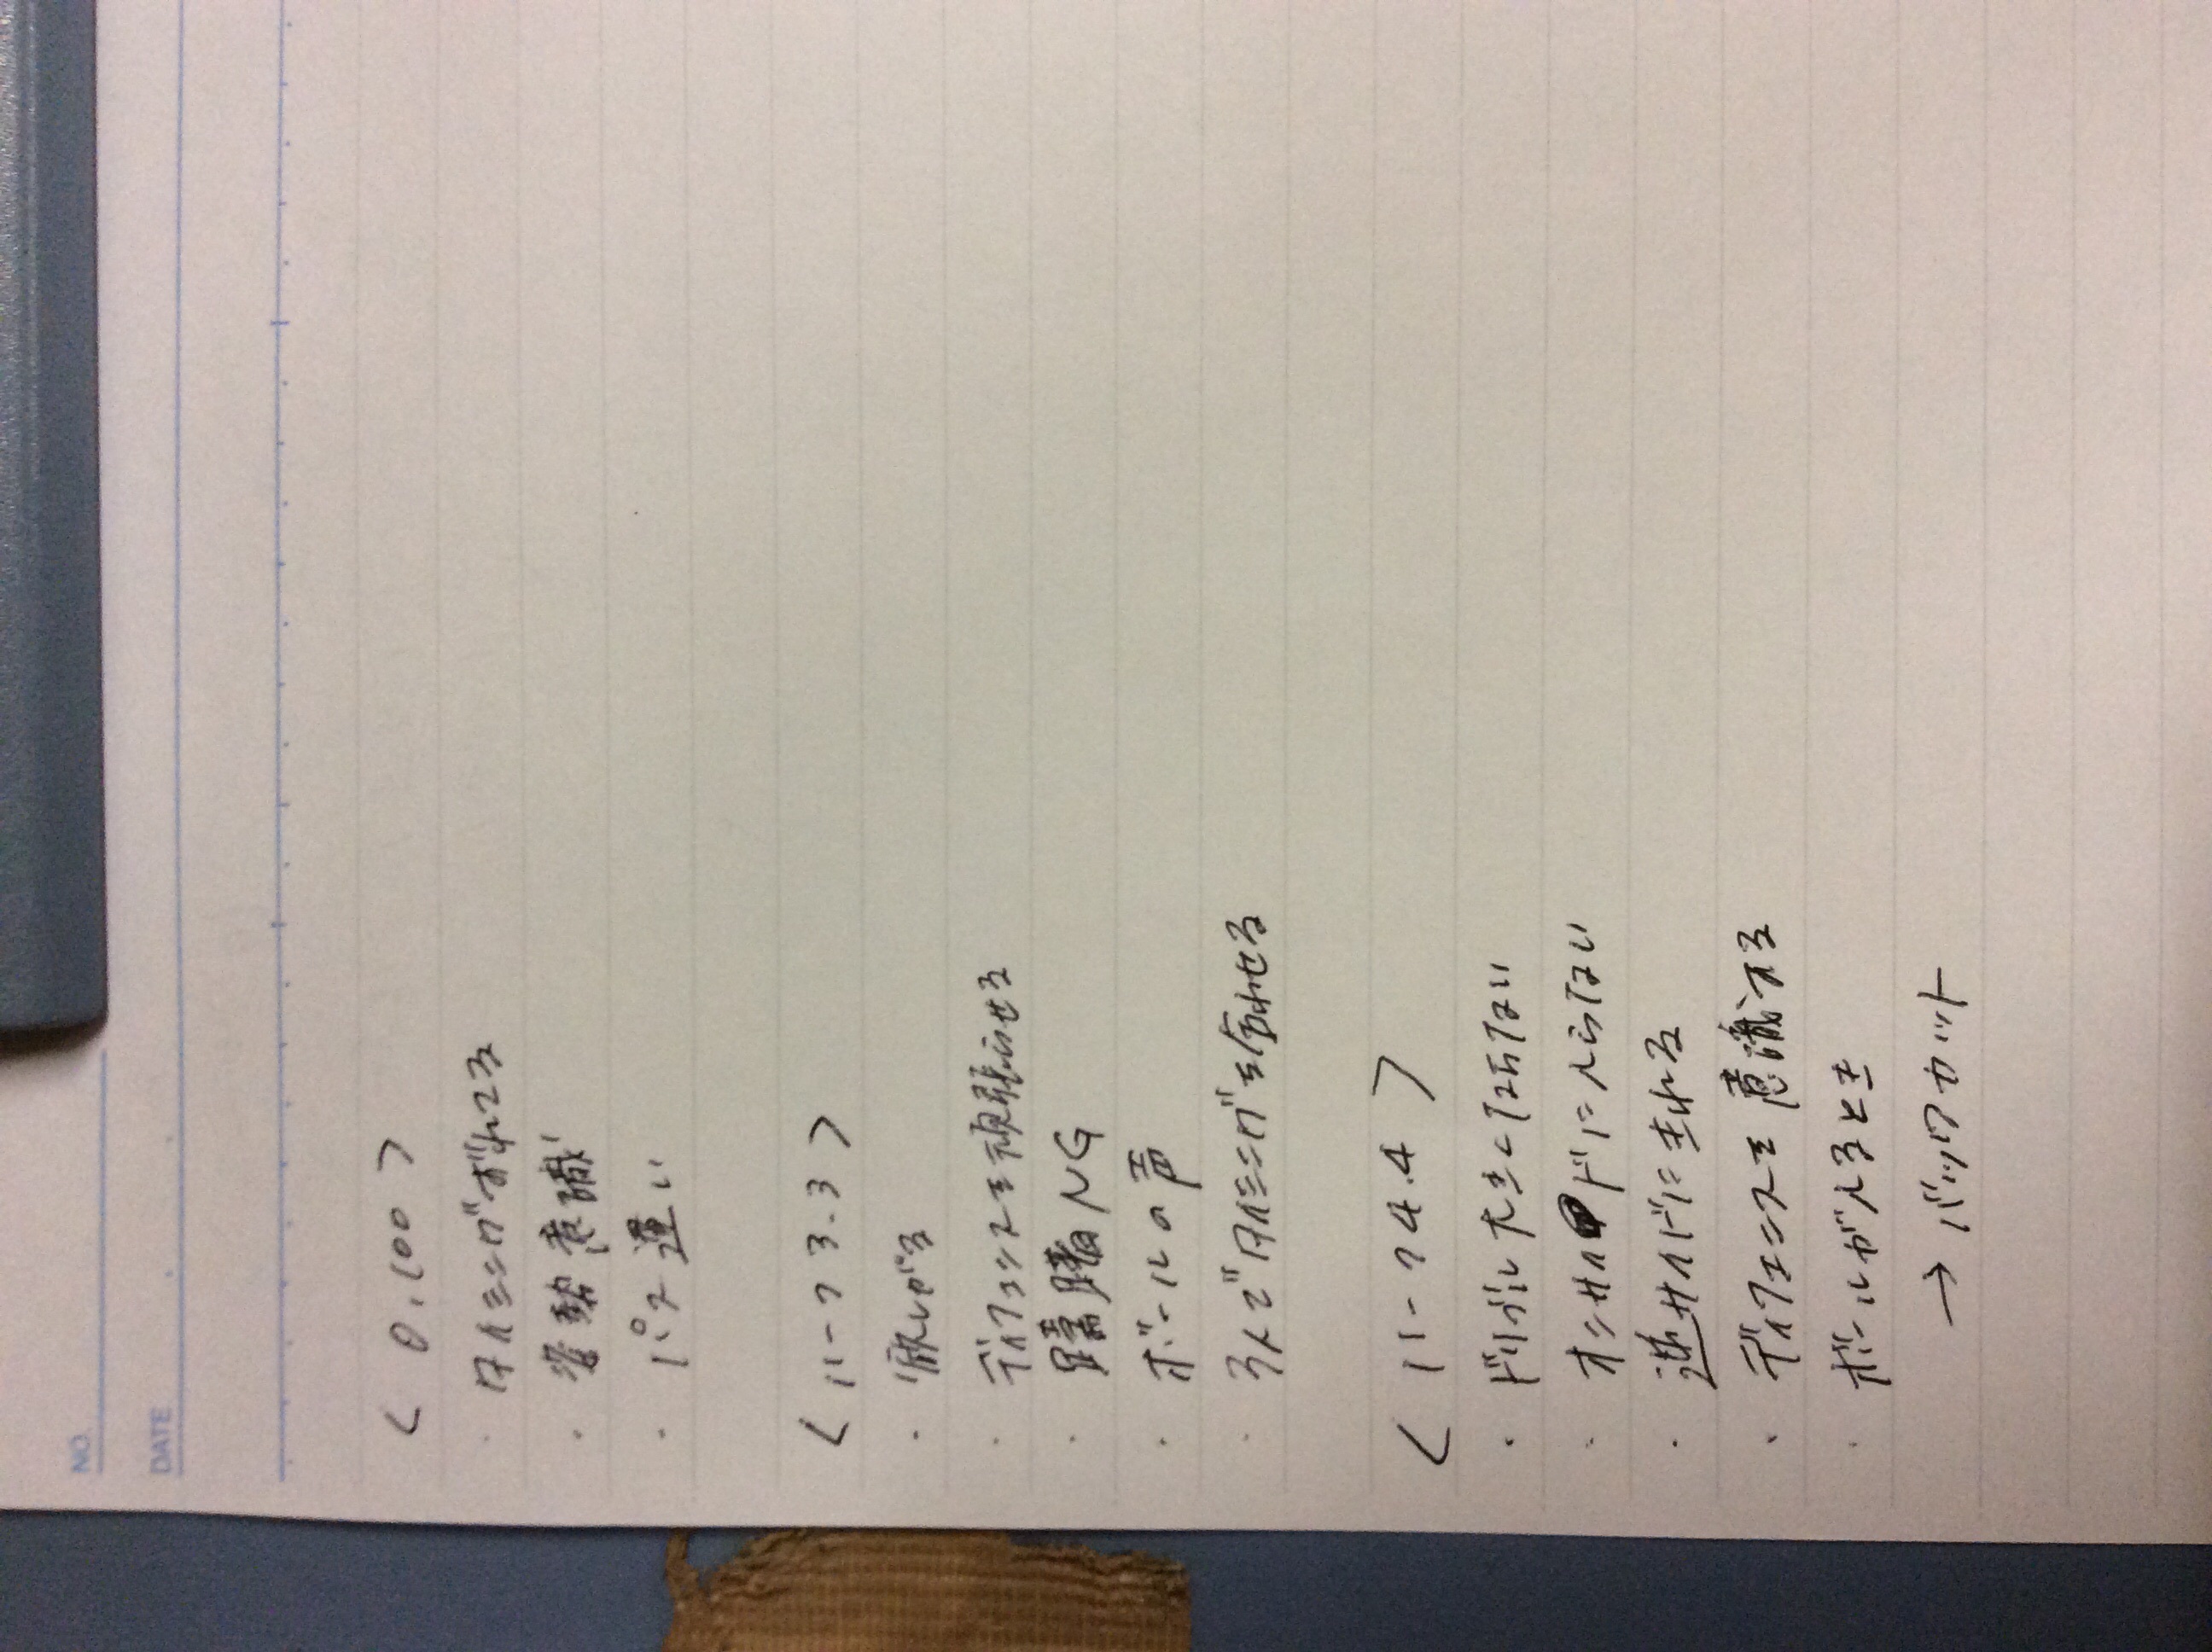 NO.
DATE
< 0.100 >
・タイミングがずれてる
・意識
・パス速い
< ハーフ 3.3 >
・欲しがる
・ディフェンスを頑張らせる
・躊躇NG
・ボールの声
・3人でタイミングを合わせる
< ハーフ 4.4 >
・ドリブル大きくしない
・オンサイドに入らない
・逆サイドにまわる
・ディフェンスを意識する
・ボールが入るとき
→ バックカット